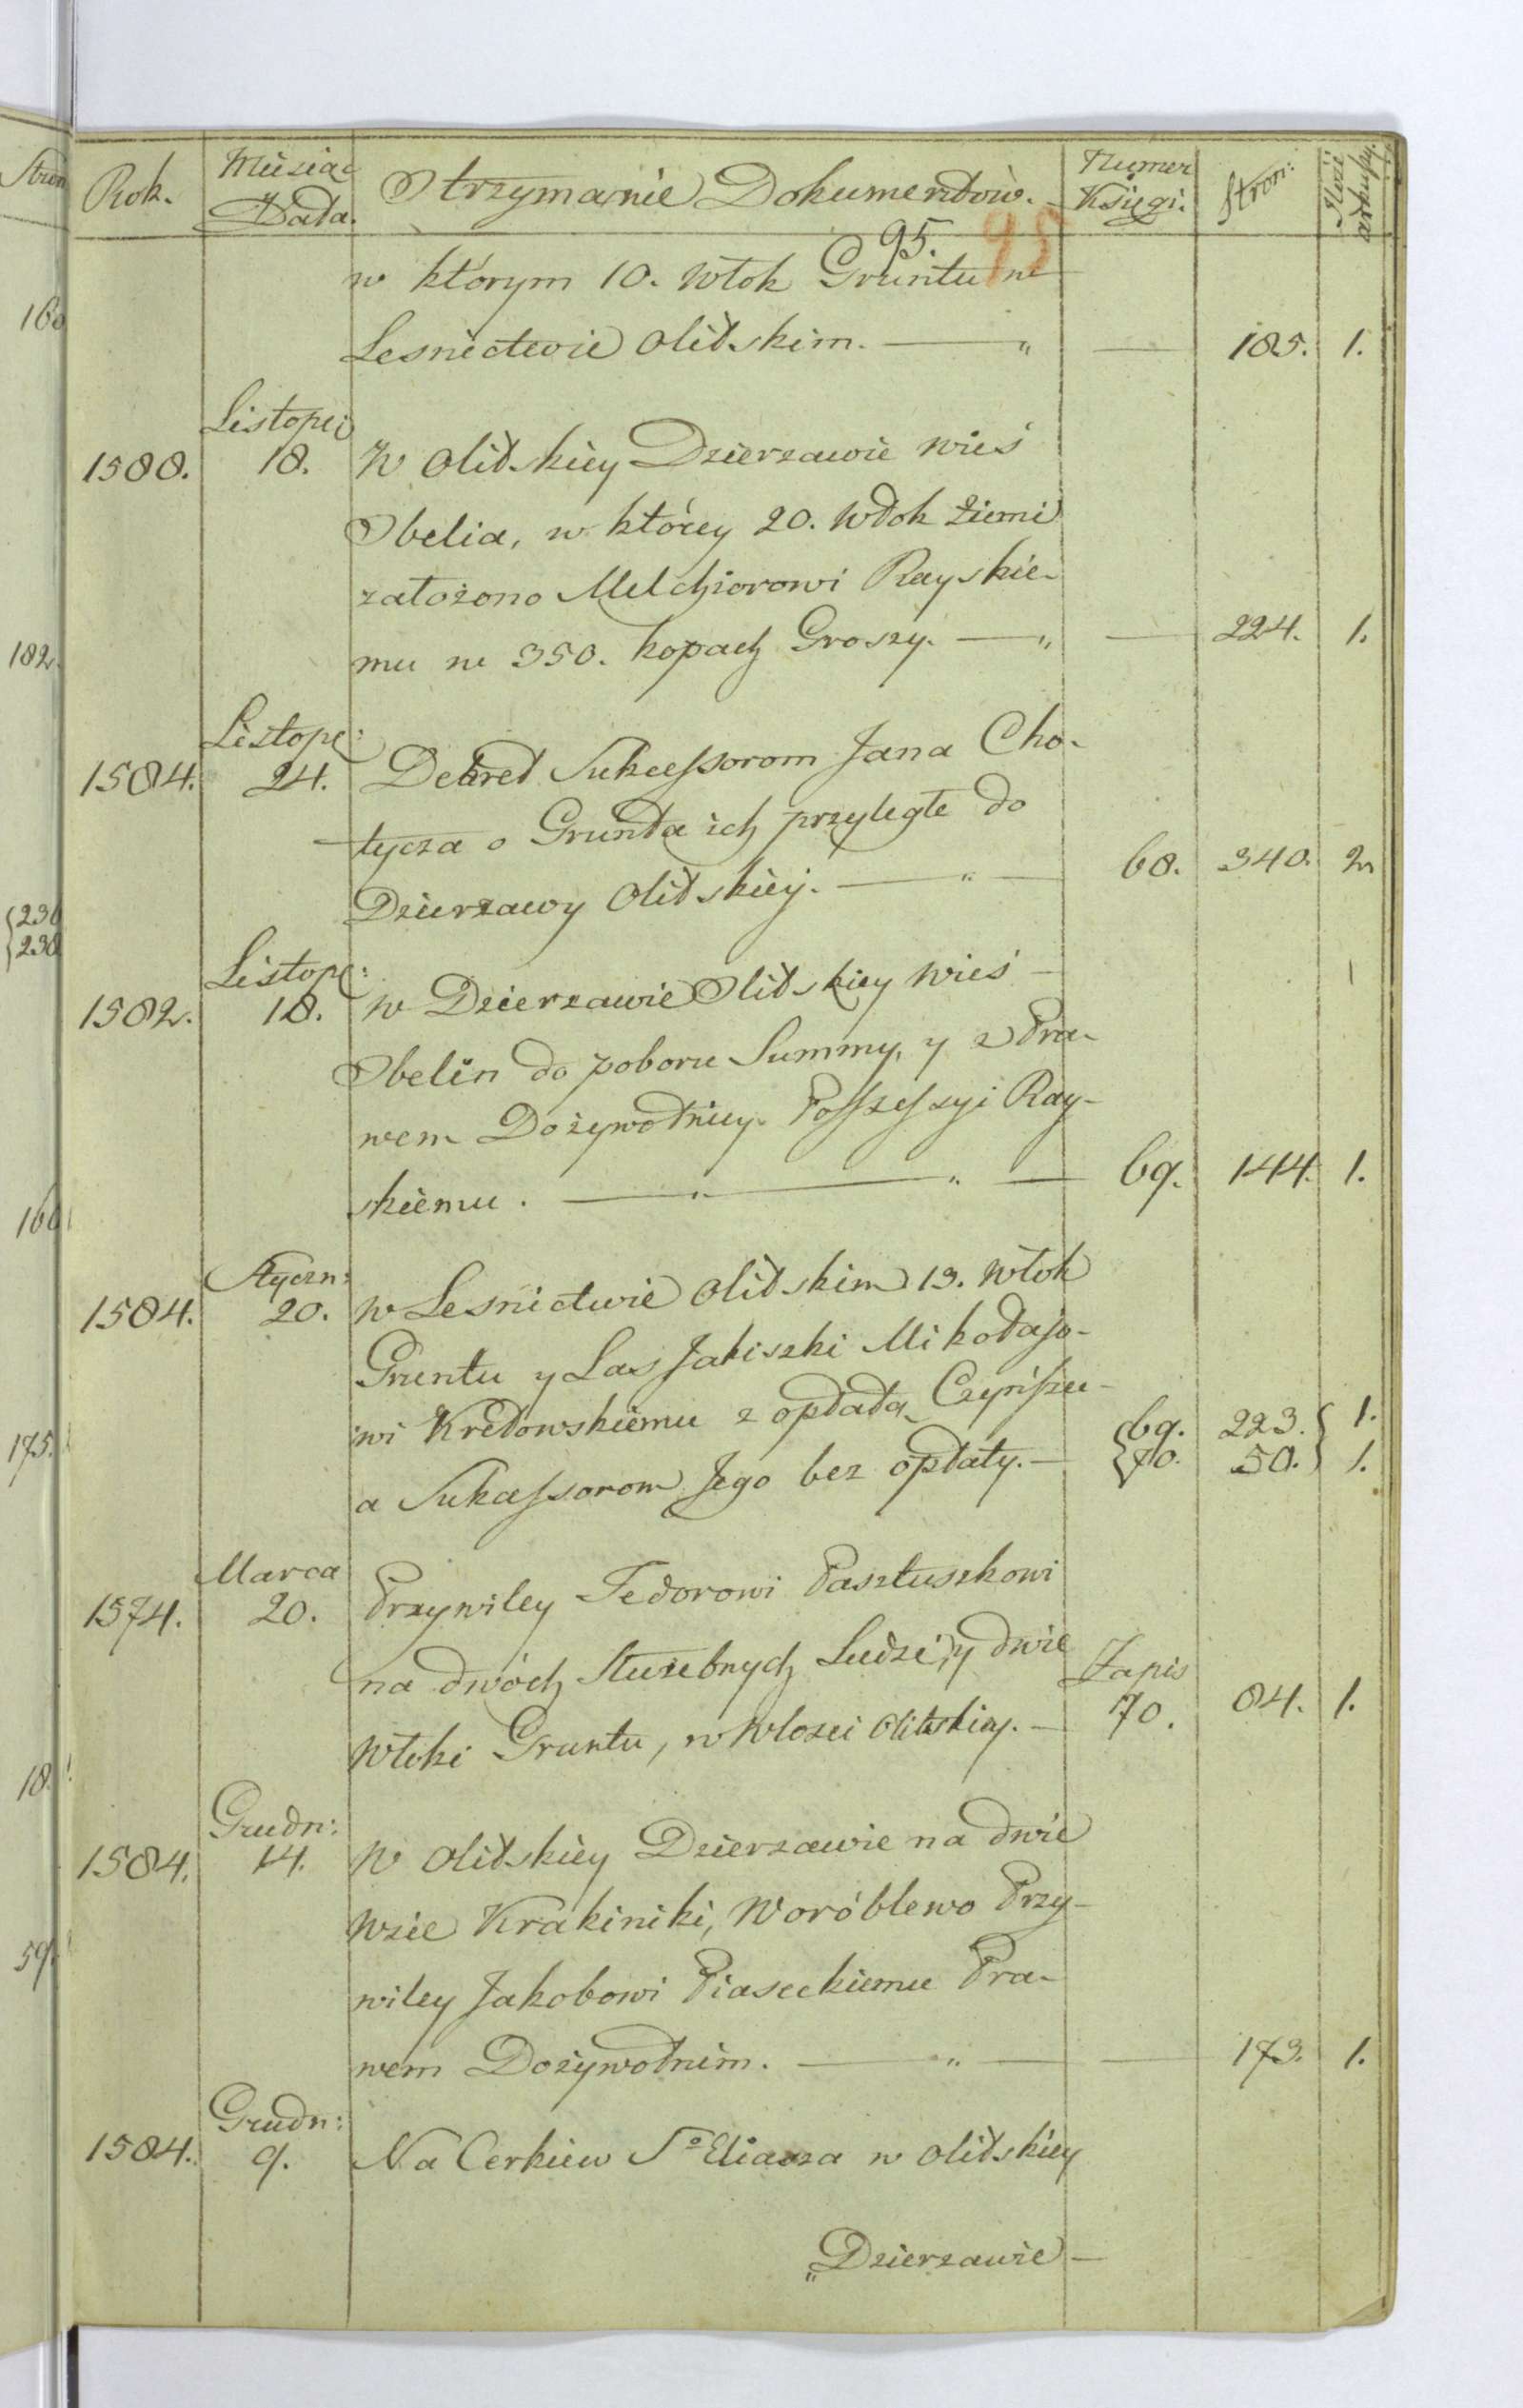 Stron
Rok.
Miesiąc
Data.
Otrzymanie Dokumentów.
Numer
Księgi.
Stron:
Ilość
arkuszy.
95.
95
w którym 10. Włok Gruntu w
Lesnictwie Olitskim. — „ — 185. 1.
Listopa:
1588. 18. W Olitskiey Dzierzawie wieś
Obelia, w którey 20. Włok Ziemi
założono Melchiorowi Rayskie-
mu w 350. kopach Groszy. — „ — 224. 1.
Listop:
1584. 24. Dekret Sukcessorom Jana Cho-
tycza o Grunta ich przyległe do
Dzierzawy Olitskiey. — „ — 68. 340. 2
Listop:
1582. 18. w Dzierzawie Olitskiey wieś —
Obelin do poboru Summy, y z Pra-
wem Dożywotniey Possessyi Ray-
skiemu. — „ — „ — 69. 144. 1.
Styczn:
1584. 20. w Lesnictwie Olitskim 13. Włok
Gruntu y Las Jakiszki Mikołajo-
wi Kredowskiemu z opłatą Czynszu- 69. 223. 1.
a Sukcessorom Jego bez opłaty. — 70. 50. 1.
Marca
1574. 20. Przywiley Fedorowi Pasztuszkowi
na dwóch Służebnych Ludzi, y dwie Zapis
Włoki Gruntu, w Włosci Olitskiey. — 70. 84. 1.
Grudn:
1584. 14. W Olitskiey Dzierzawie na dwie
Wsie Krakiniki, Woróblewo Przy-
wiley Jakobowi Piaseckiemu Pra-
wem Dożywotnim. — „ — 173. 1.
Grudn:
1584. 9. Na Cerkiew Sº Eliasza w Olitskiey
„Dzierzawie —
160
182.
230
238
160
175.
18.
59.